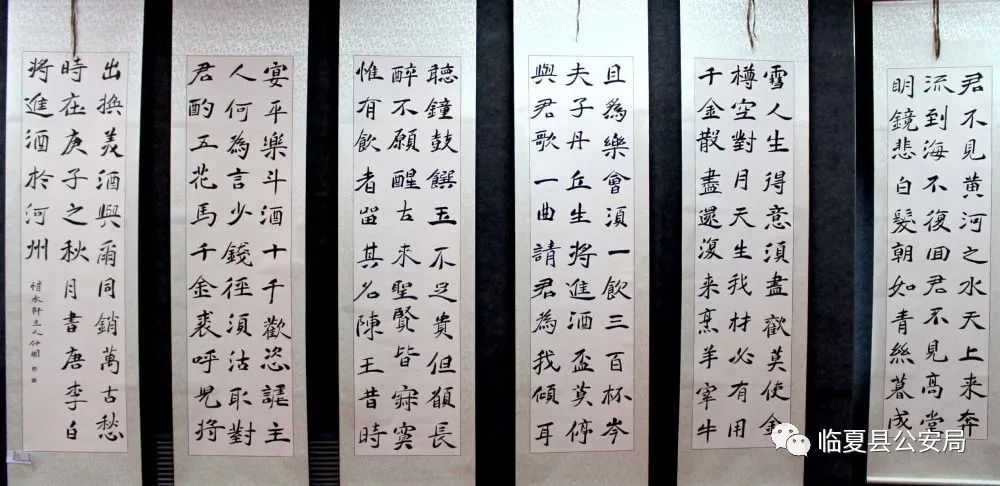 君不見黄河之水天上来奔
流到海不復囬君不見高堂
明鏡悲白髮朝如青絲暮成
雪人生得意須盡歡莫使金
樽空對月天生我材必有用
千金散盡還復来烹羊宰牛
且為樂會須一飲三百杯岑
夫子丹丘生將進酒盃莫停
與君歌一曲請君為我傾耳
聽鐘鼓饌玉不足貴但願長
醉不願醒古来聖賢皆寂寞
惟有飲者留其名陳王昔時
宴平樂斗酒十千歡恣謔主
人何為言少錢徑須沽取對
君酌五花馬千金裘呼兒將
出換美酒與爾同銷萬古愁
時在庚子之秋月書唐李白
將進酒於河州
主人
临夏县公安局